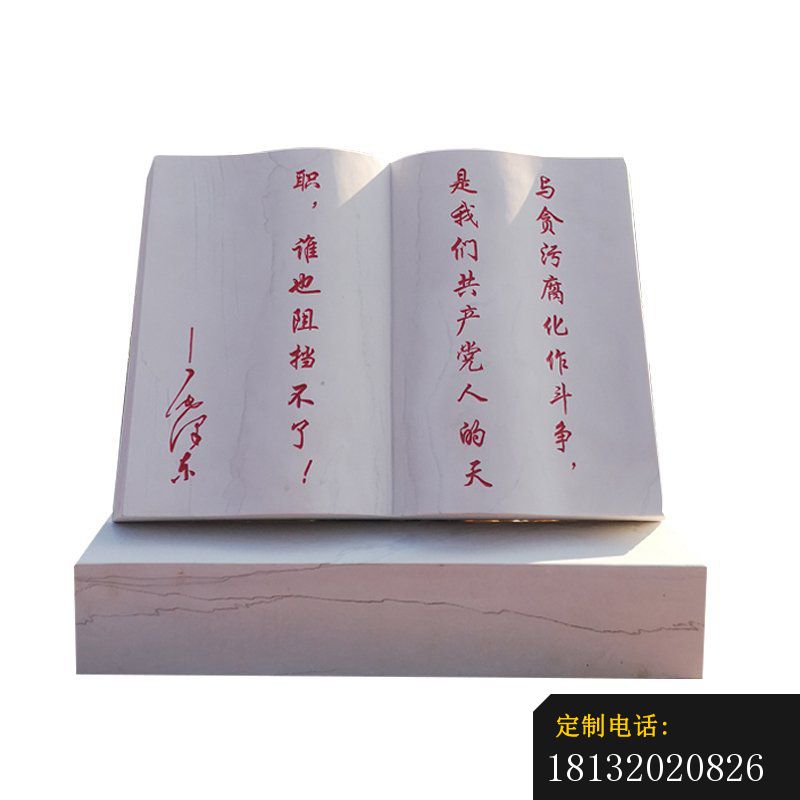 与贪污腐化作斗争，
是我们共产党人的天
职，谁也阻挡不了！
—毛泽东
定制电话：
18132020826